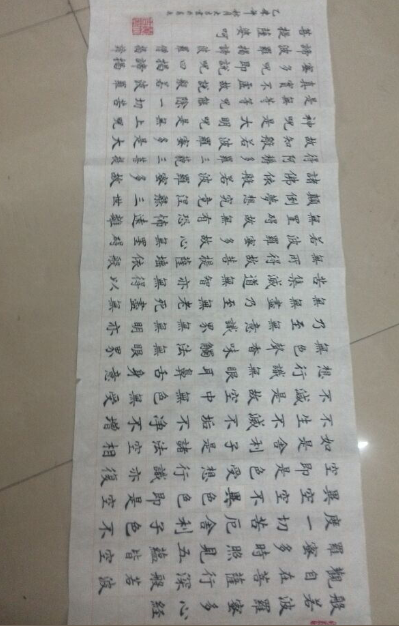 般若波羅蜜多心經
觀自在菩薩行深般若波
羅蜜多時照見五蘊皆空
度一切苦厄舍利子色不
異空空不異色色即是空
空即是色受想行識亦復
如是舍利子是諸法空相
不生不滅不垢不淨不增
不減是故空中無色無受
想行識無眼耳鼻舌身意
無色聲香味觸法無眼界
乃至無意識界無無明亦
無無明盡乃至無老死無
苦集滅道無智亦無得以
無所得故菩提薩埵依般
若波羅蜜多故心無罣礙
無罣礙故無有恐怖遠離
顛倒夢想究竟涅槃三世
諸佛依般若波羅蜜多故
得阿耨多羅三藐三菩提
故知般若波羅蜜多是大
神呪是大明呪是無上呪
是無等等呪能除一切苦
真實不虛故說般若波羅
蜜多呪即說呪曰揭諦揭
諦波羅揭諦波羅僧揭諦
菩提薩婆訶
乙未年